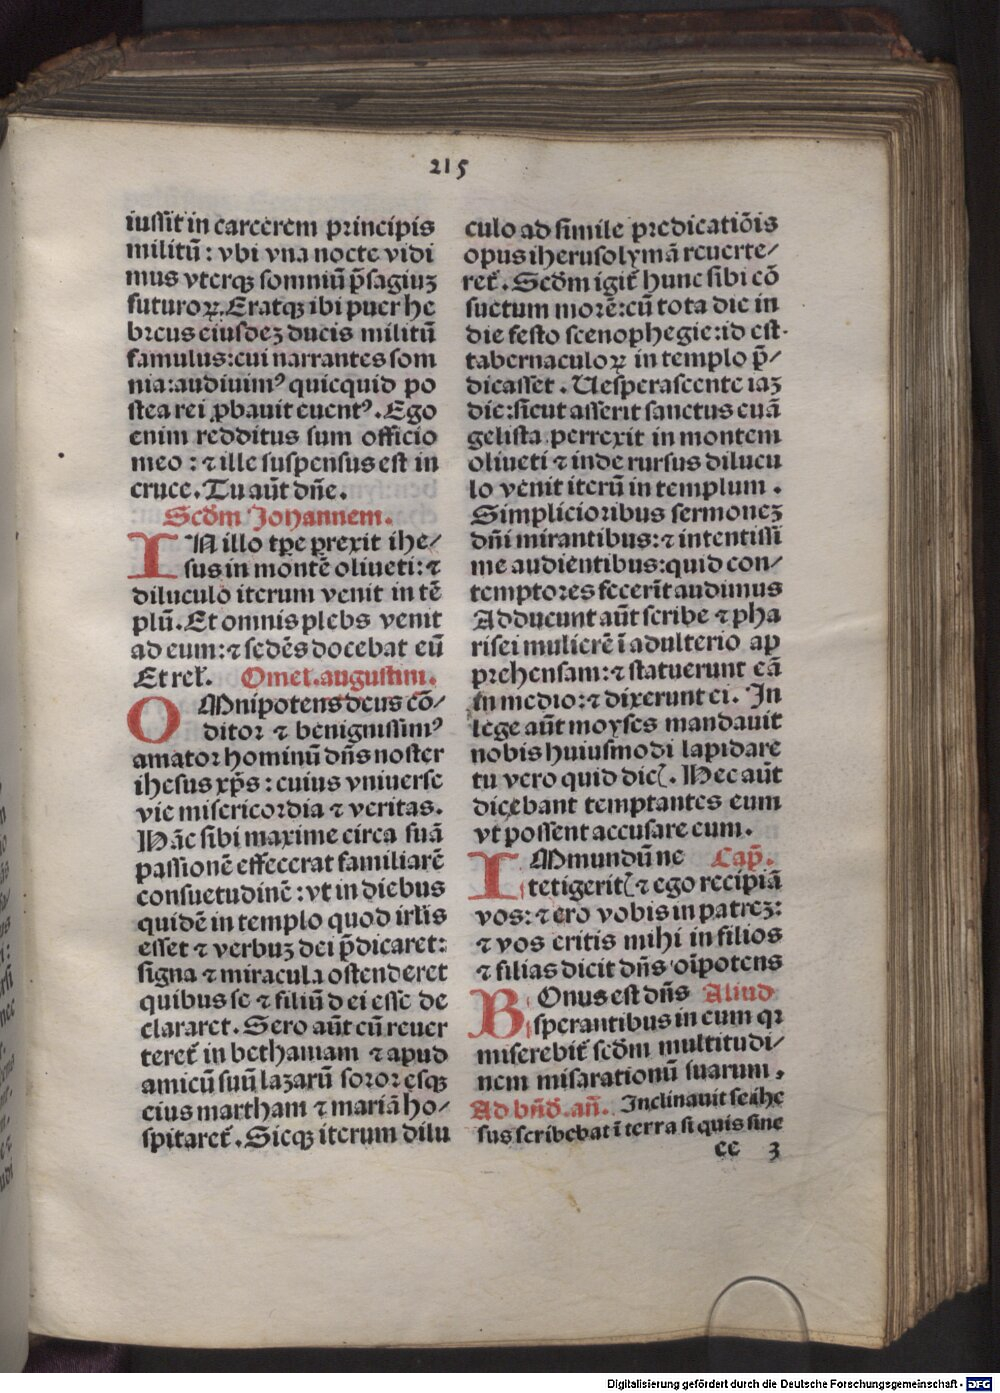 215
iussit in carcerem principis
militū: vbi vna nocte vidi
mus vterqꝫ somniū p̄sagiuꝫ
futuroꝝ. Eratqꝫ ibi puer he
breus eiusdeꝫ ducis militū
famulus: cui narrantes som
nia: audiuimꝰ quicquid po
stea rei ꝓbauit euentꝰ. Ego
enim redditus sum officio
meo: ⁊ ille suspensus est in
cruce. Tu aūt dn̄e.
Scd̄m Johannem.
IN illo tꝑe ꝑrexit ihe/
sus in montē oliueti: ⁊
diluculo iterum venit in tē
plū. Et omnis plebs venit
ad eum: ⁊ sedēs docebat eū
Et rel̄. Omel̄. augustini.
OMnipotens deus cō/
ditor ⁊ benignissimꝰ
amator hominū dn̄s noster
ihesus xp̄s: cuius vniuerse
vie misericordia ⁊ veritas.
Hāc sibi maxime circa suā
passionē effecerat familiarē
consuetudinē: vt in diebus
quidē in templo quod irl̄is
esset ⁊ verbuꝫ dei p̄dicaret:
signa ⁊ miracula ostenderet
quibus se ⁊ filiū dei esse de
clararet. Sero aūt cū reuer
teret̄ in bethaniam ⁊ apud
amicū suū lazarū sororesqꝫ
eius martham ⁊ mariā ho/
spitaret̄. Sicqꝫ iterum dilu
culo ad simile predicatiōis
opus iherusolymā reuerte/
ret̄. Scd̄m igit̄ hunc sibi cō
suetum morē: cū tota die in
die festo scenophegie: id est.
tabernaculoꝝ in templo p̄/
dicasset. Uesperascente iaꝫ
die: sicut asserit sanctus euā
gelista perrexit in montem
oliueti ⁊ inde rursus dilucu
lo venit iterū in templum.
Simplicioribus sermoneꝫ
dn̄i mirantibus: ⁊ intentissi
me audientibus: quid con/
temptores fecerīt audimus
Adducunt aūt scribe ⁊ pha
risei mulierē ī adulterio ap
prehensam: ⁊ statuerunt eā
in medio: ⁊ dixerunt ei. In
lege aūt moyses mandauit
nobis huiusmodi lapidare
tu vero quid dic̄. Hec aūt
dicebant temptantes eum
vt possent accusare eum.
IMmundū ne Cap̄.
tetigerit̄ ⁊ ego recipiā
vos: ⁊ ero vobis in patreꝫ:
⁊ vos eritis mihi in filios
⁊ filias dicit dn̄s oīpotens
BOnus est dn̄s Aliud
sperantibus in eum qꝛ
miserebit̄ scd̄m multitudi/
nem misarationū suarum.
Ad bn̄d̄. an̄. Inclinauit se ihe
sus scribebat ī terra si quis sine
cc 3
Digitalisierung gefördert durch die Deutsche Forschungsgemeinschaft - DFG